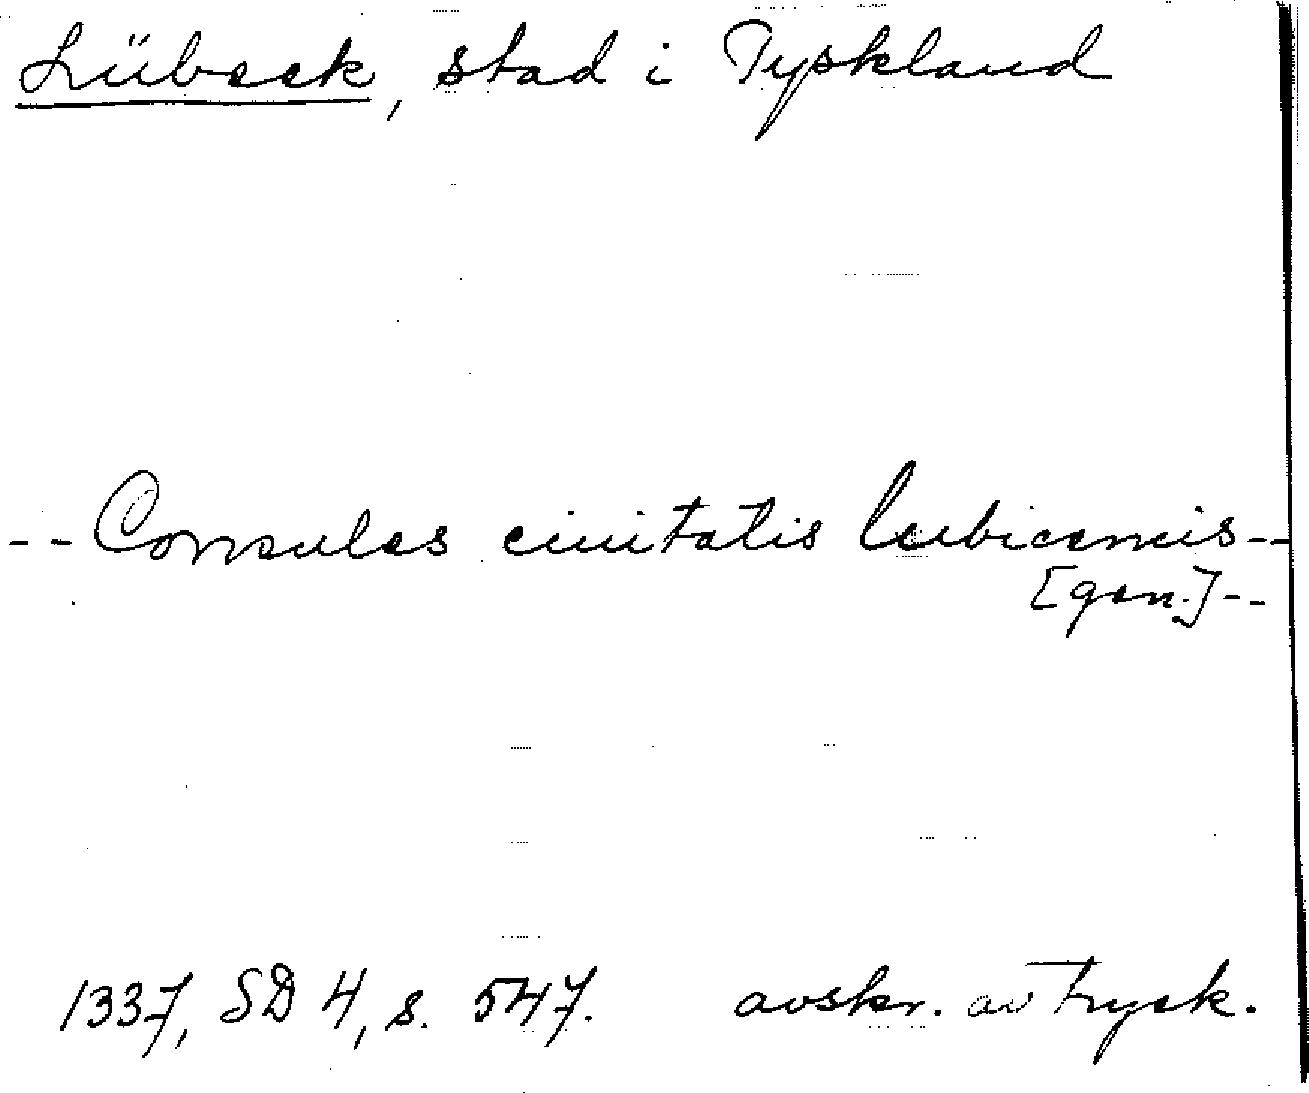 Lübeck, stad i Tyskland
-- Consules ciuitatis lubicensis --
[gen.] --
1337, SD 4, s. 547. avskr. av tryck.